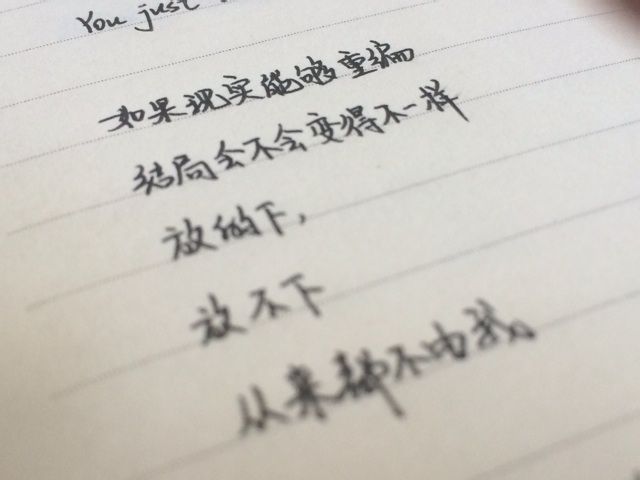 You just
如果现实能够重编
结局会不会变得不一样
放的下，
放不下
从来都不由我。